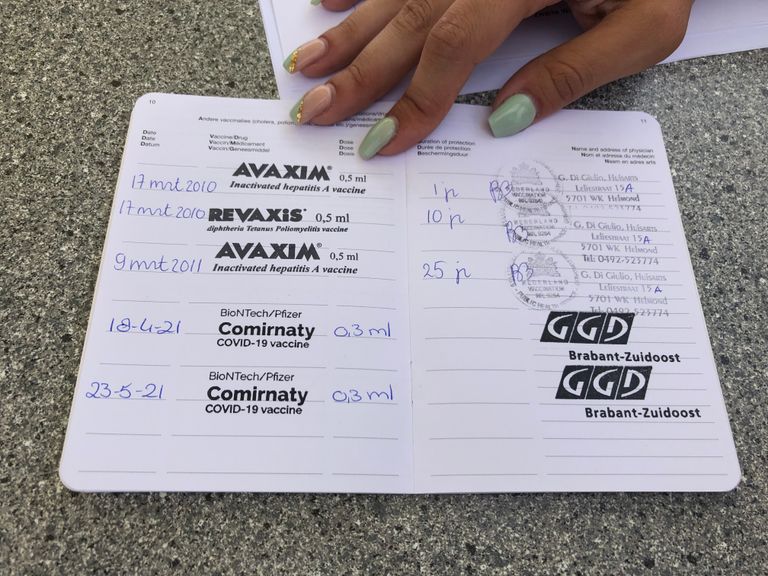 10
11
Andere vaccinaties (cholera,
Date
Date
Datum
Vaccine/Drug
Vaccin/Médicament
Vaccin/Geneesmiddel
Dose
Dose
Dosis
Duration of protection
Durée de protection
Beschermingsduur
Name and address of physician
Nom et adresse du médecin
Naam en adres arts
17 mrt 2010 AVAXIM 0,5 ml 1 jr
Inactivated hepatitis A vaccine
G. Di Giulio, Huisarts
Leliestraat 15A
5701 WK Helmond
17 mrt 2010 REVAXiS 0,5 ml 10 jr
diphtheria Tetanus Poliomyelitis vaccine
G. Di Giulio, Huisarts
Leliestraat 15A
5701 WK Helmond
Tel: 0492-523774
9 mrt 2011 AVAXIM 0,5 ml 25 jr
Inactivated hepatitis A vaccine
NEDERLAND
VACCINATION
PUBLIC HEALTH
G. Di Giulio, Huisarts
Leliestraat 15A
5701 WK Helmond
Tel: 0492-523774
18-4-21 BioNTech/Pfizer
Comirnaty 0,3 ml
COVID-19 vaccine
GGD
Brabant-Zuidoost
23-5-21 BioNTech/Pfizer
Comirnaty 0,3 ml
COVID-19 vaccine
GGD
Brabant-Zuidoost